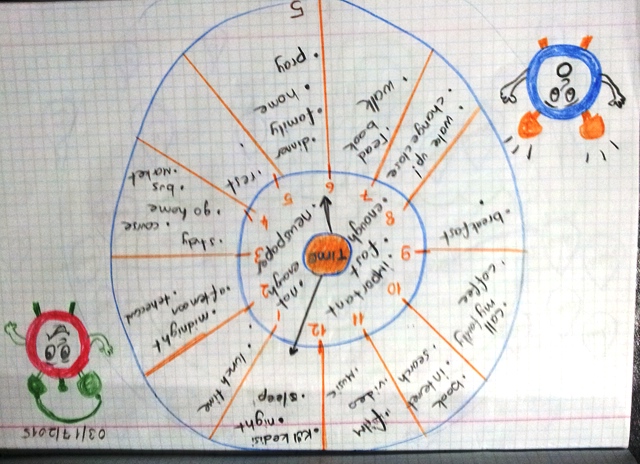 03/17/2015
TIME
12
11
10
9
8
7
6
5
4
3
2
1
• newspaper
• not
enough
• enough
• fast
• important
• sleep
• night
• lunch time
• midnight
• afternoon
• course
• go home
• bus
• market
• rest
• dinner
• family
• home
• pray
• walk
• read
book
• wake up!
• change close
• breakfast
• coffee
• call
my family
• search
internet
book
• music
video
film
5